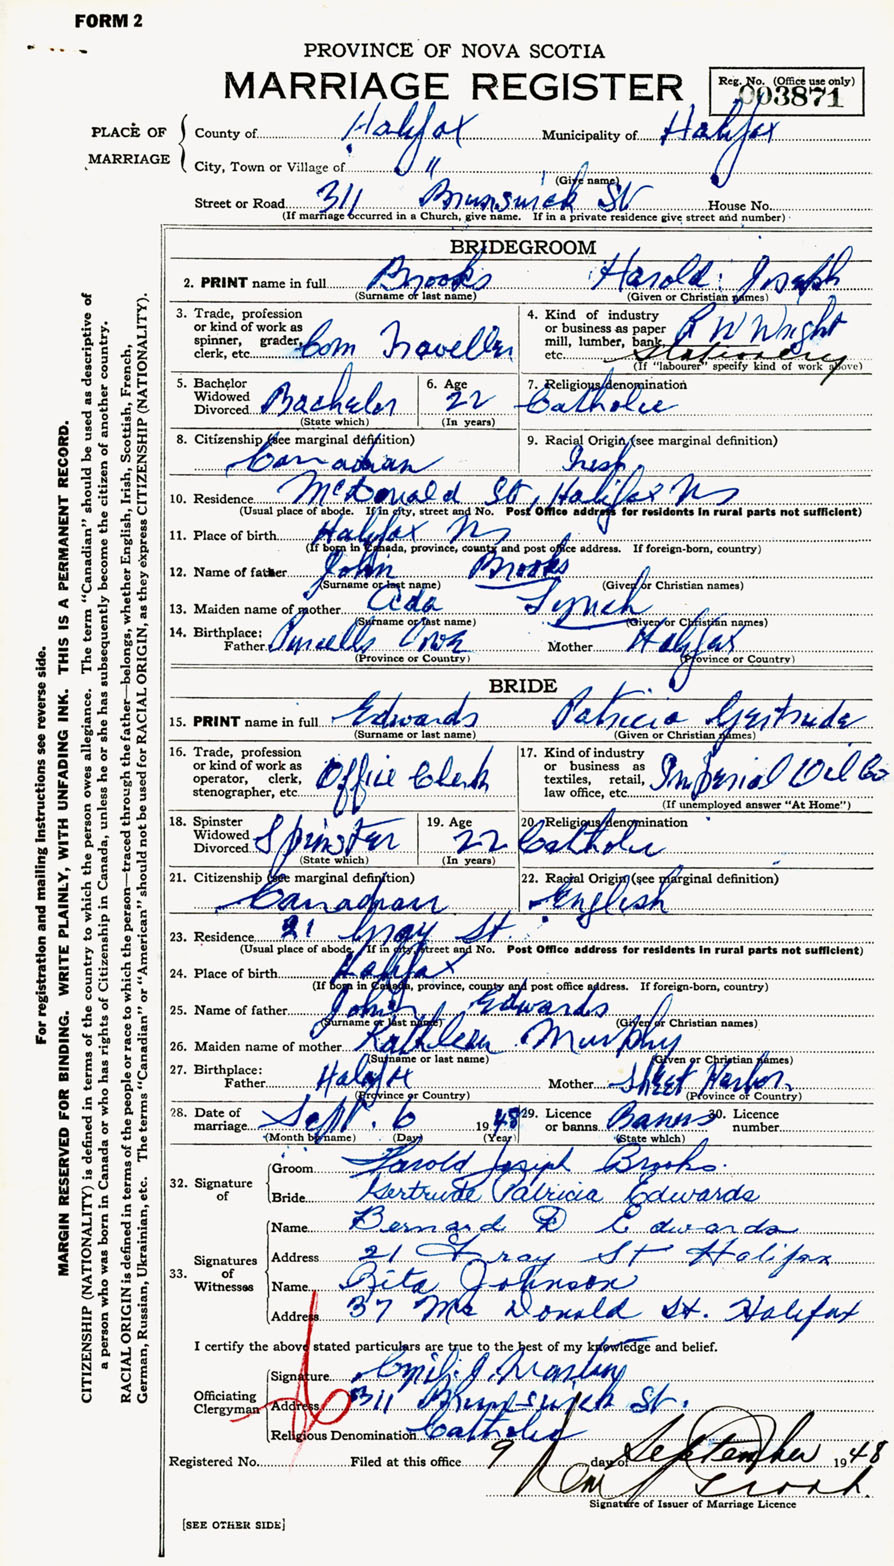 FORM 2
PROVINCE OF NOVA SCOTIA
MARRIAGE REGISTER
Reg. No. (Office use only)
003871
PLACE OF MARRIAGE
County of Halifax Municipality of Halifax
City, Town or Village of "
(Give name)
Street or Road 311 Brunswick St House No.
(If marriage occurred in a Church, give name. If in a private residence give street and number)
BRIDEGROOM
2. PRINT name in full Brooks Harold Joseph
(Surname or last name) (Given or Christian names)
3. Trade, profession or kind of work as spinner, grader, clerk, etc. Com Traveller
4. Kind of industry or business as paper mill, lumber, bank, etc. R W Wright Stationery
(If "labourer" specify kind of work above)
5. Bachelor Widowed Divorced Bachelor
(State which)
6. Age 22
(In years)
7. Religious denomination Catholic
8. Citizenship (see marginal definition) Canadian
9. Racial Origin (see marginal definition) Irish
10. Residence McDonald St, Halifax NS
(Usual place of abode. If in city, street and No. Post Office address for residents in rural parts not sufficient)
11. Place of birth Halifax NS
(If born in Canada, province, county and post office address. If foreign-born, country)
12. Name of father John Brooks
(Surname or last name) (Given or Christian names)
13. Maiden name of mother Ada Lynch
(Surname or last name) (Given or Christian names)
14. Birthplace: Father Purcells Cove Mother Halifax
(Province or Country) (Province or Country)
BRIDE
15. PRINT name in full Edwards Patricia Gertrude
(Surname or last name) (Given or Christian names)
16. Trade, profession or kind of work as operator, clerk, stenographer, etc. Office Clerk
17. Kind of industry or business as textiles, retail, law office, etc. Imperial Oil Co
(If unemployed answer "At Home")
18. Spinster Widowed Divorced Spinster
(State which)
19. Age 22
(In years)
20. Religious denomination Catholic
21. Citizenship (see marginal definition) Canadian
22. Racial Origin (see marginal definition) English
23. Residence 21 Gray St.
(Usual place of abode. If in city, street and No. Post Office address for residents in rural parts not sufficient)
24. Place of birth Halifax
(If born in Canada, province, county and post office address. If foreign-born, country)
25. Name of father John Edwards
(Surname or last name) (Given or Christian names)
26. Maiden name of mother Kathleen Murphy
(Surname or last name) (Given or Christian names)
27. Birthplace: Father Halifax Mother Sheet Harbor
(Province or Country) (Province or Country)
28. Date of marriage Sept. 6 1948
(Month by name) (Day) (Year)
29. Licence or banns Banns
(State which)
30. Licence number
32. Signature of
Groom Harold Joseph Brooks.
Bride Gertrude Patricia Edwards
33. Signatures of Witnesses
Name Bernard D Edwards
Address 21 Gray St Halifax
Name Rita Johnson
Address 37 McDonald St. Halifax
I certify the above stated particulars are true to the best of my knowledge and belief.
Officiating Clergyman
Signature
Address 311 Brunswick St.
Religious Denomination Catholic
Registered No. Filed at this office 9 day of September 1948
Signature of Issuer of Marriage Licence
[SEE OTHER SIDE]
For registration and mailing instructions see reverse side.
MARGIN RESERVED FOR BINDING. WRITE PLAINLY, WITH UNFADING INK. THIS IS A PERMANENT RECORD.
CITIZENSHIP (NATIONALITY) is defined in terms of the country to which the person owes allegiance. The term "Canadian" should be used as descriptive of
a person who was born in Canada or who has rights of Citizenship in Canada, unless he or she has subsequently become the citizen of another country.
RACIAL ORIGIN is defined in terms of the people or race to which the person—traced through the father—belongs, whether English, Irish, Scottish, French,
German, Russian, Ukrainian, etc. The terms "Canadian" or "American" should not be used for RACIAL ORIGIN, as they express CITIZENSHIP (NATIONALITY).